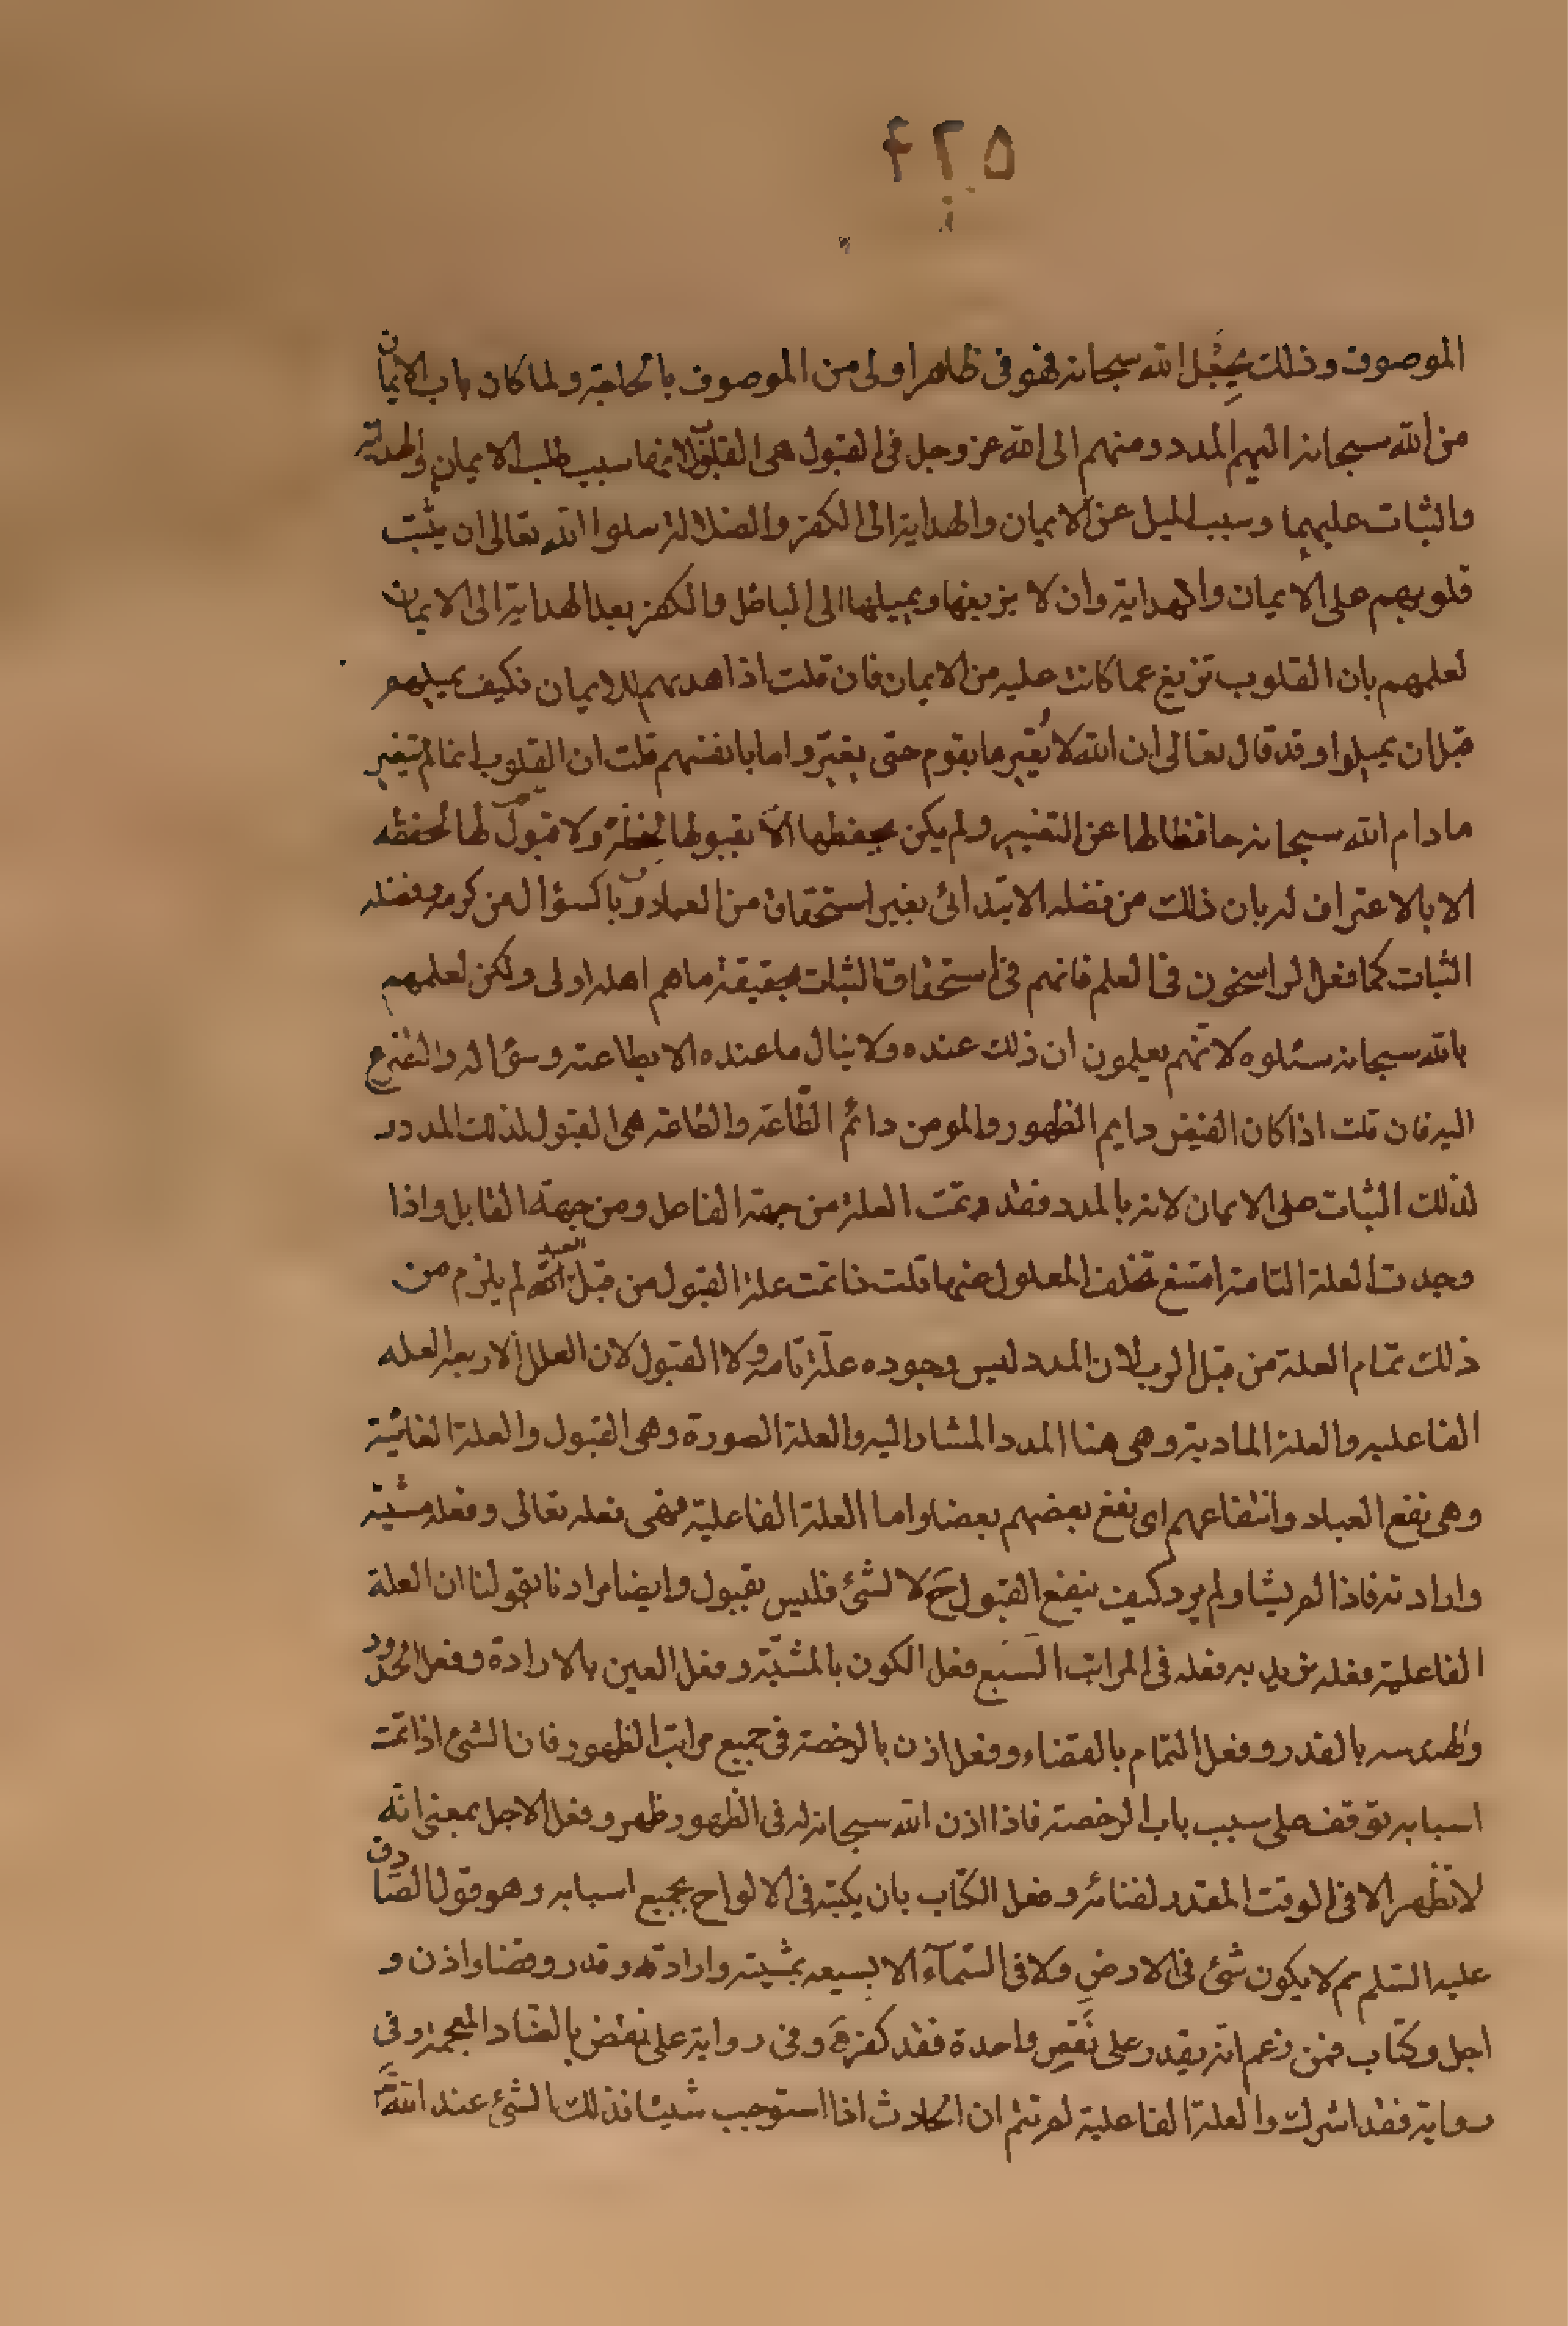 ۴۲۵
الموصوف وذلك بجعل الله سبحانه فهو فى ظاهر اولى من الموصوف بالحاجة ولما كان باب الايمان
من الله سبحانه اليهم المدد ومنهم الى الله عز وجل فى القبول هى القلوب لانها سبب طلب الايمان والهداية
والثبات عليهما وسبب الميل عن الايمان والهداية الى الكفر والضلالة سلوا الله تعالى ان يثبت
قلوبهم على الايمان والهداية وان لا يزيغها ويميلها الى الباطل والكفر بعد الهداية الى الايمان
لعلمهم بان القلوب تزيغ عما كانت عليه من الايمان فان قلت اذا هديهم للايمان فكيف يميلهم
قبل ان يميلوا وقد قال تعالى ان الله لا يُغير ما بقوم حتى يغيّروا ما بانفسهم قلت ان القلوب انما لم تتغير
ما دام الله سبحانه حافظا لها عن التغيير ولم يكن يحفظها الّا بقبولها لحفظه ولا قبول لها لحفظه
الا بالاعتراف له بان ذلك من فضله الابتدائى بغير استحقاق من العباد وبالسؤال من كرمه وفضله
الثبات كما فعل الراسخون فى العلم فانهم فى استحقاق الثبات بحقيقة ما هم اهله اولى ولكن لعلمهم
بالله سبحانه سئلوه لانّهم يعلمون ان ذلك عنده ولا ينال ما عنده الا بطاعته وسؤاله والتضرع
اليه فان قلت اذا كان الفيض دايم الظهور والمومن دائم الطّاعة والطاعة هى القبول لذلك المدد و
لذلك الثبات على الايمان لانه بالمدد فقد وتمت العلة من جهة الفاعل ومن جهة القابل واذا
وجدت العلة التامة امتنع تخلف المعلول عنها قلت اذا تمت علة القبول من قبل العبد لم يلزم من
ذلك تمام العلة من قبل الرب لان المدد ليس وجوده علّة تامة ولا القبول لان العلل الاربعة العله
الفاعليه والعلة المادية وهى هنا المدد المشار اليه والعلة الصورة وهى القبول والعلة الغائية
وهى نفع العباد وانتفاعهم اى نفع بعضهم بعضا واما العلة الفاعلية فهى فعله تعالى وفعله مشيته
وارادته فاذا لم يشا ولم يرد كيف ينفع القبول حَ لا لشئ فليس بقبول وايضا مرادنا بقولنا ان العلة
الفاعلية فعله نريد به فعله فى المراتب السبع فعل الكون بالمشيّة وفعل العين بالارادة وفعل الحدود
والهندسه بالقدر وفعل التمام بالقضاء وفعل اذن بالرخصة فى جميع مراتب الظهور فان الشئ اذا تمت
اسبابه توقف على سبب باب الرخصة فاذا اذن الله سبحانه له فى الظهور ظهر وفعل الاجل بمعنى انّه
لا تظهر الا فى الوقت المقدر لفنائه وفعل الكتاب بان يكتبه فى الالواح بجميع اسبابه وهو قول الصّادق
عليه السّلم لا يكون شئ فى الارض ولا فى السّمآء الا بسبعه بمشيته وارادة وقدر وقضا واذن و
اجل وكتاب فمن زعم انه يقدر على نَقصِ واحدة فقد كفر هَ وفى رواية على نقض بالضاد المعجمة وفى
رواية فقد اشرك والعلة الفاعلية لم تتم ان الحادث اذا استوجب شيئا فذلك الشئ عند اللهَ